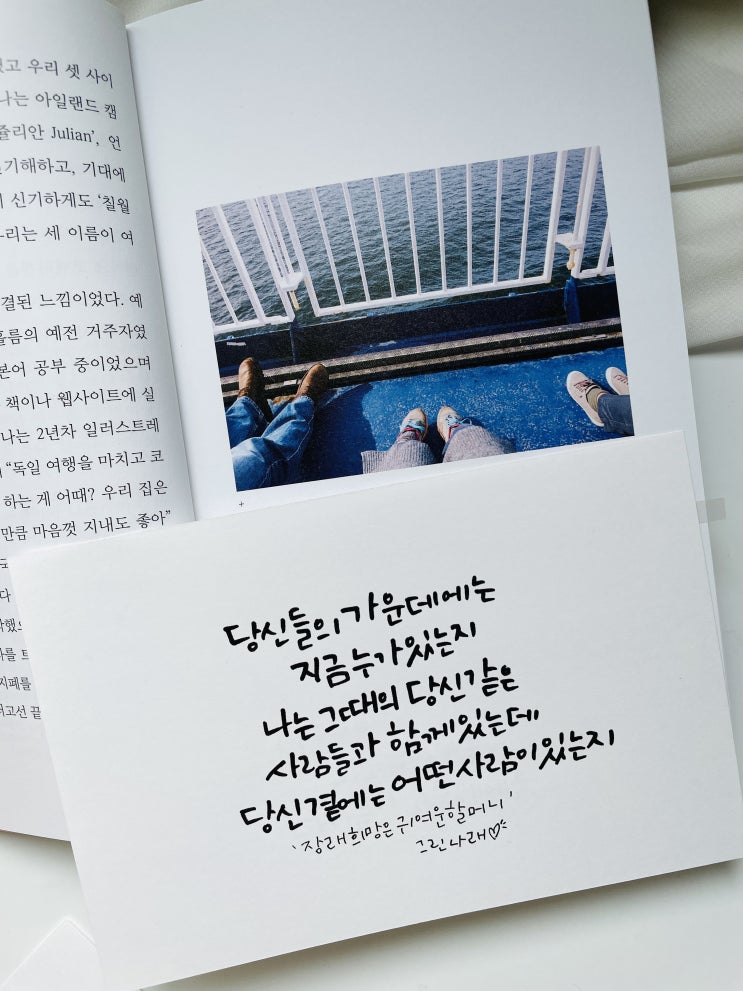 고 우리 셋 사이
나는 아일랜드 캠
쥴리안 Julian’, 언
기해하고, 기대에
신기하게도 ‘칠월
우리는 세 이름이 여
결된 느낌이었다. 예
홀름의 예전 거주자였
본어 공부 중이었으며
책이나 웹사이트에 실
나는 2년차 일러스트레
“독일 여행을 마치고 코
하는 게 어때? 우리 집은
만큼 마음껏 지내도 좋아”
다
를 트
지폐를
고선 끝
+
당신들의 가운데에는
지금 누가 있는지
나는 그때의 당신 같은
사람들과 함께 있는데
당신 곁에는 어떤 사람이 있는지
‘장래희망은 귀여운 할머니’
그린나래♡